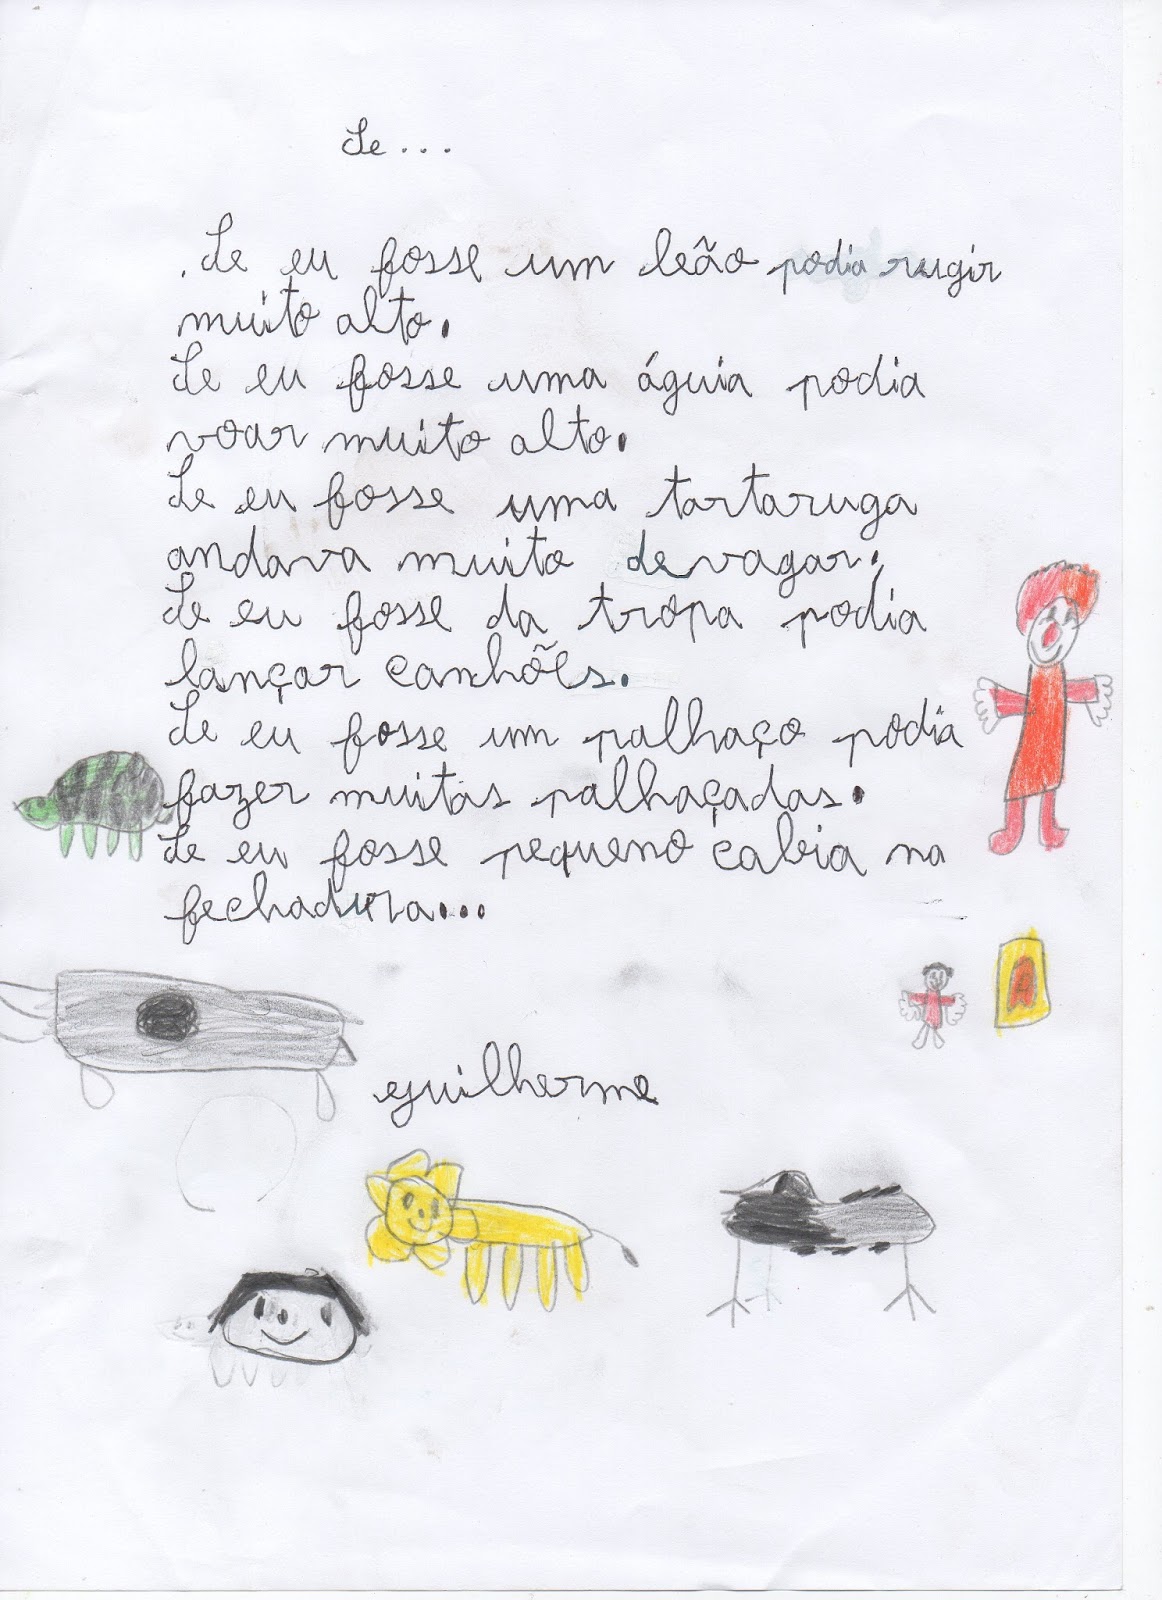 Se...
Se eu fosse um leão podia rugir
muito alto.
Se eu fosse uma águia podia
voar muito alto.
Se eu fosse uma tartaruga
andava muito devagar.
Se eu fosse da tropa podia
lançar canhões.
Se eu fosse um palhaço podia
fazer muitas palhaçadas.
Se eu fosse pequeno cabia na
fechadura...
guilherme